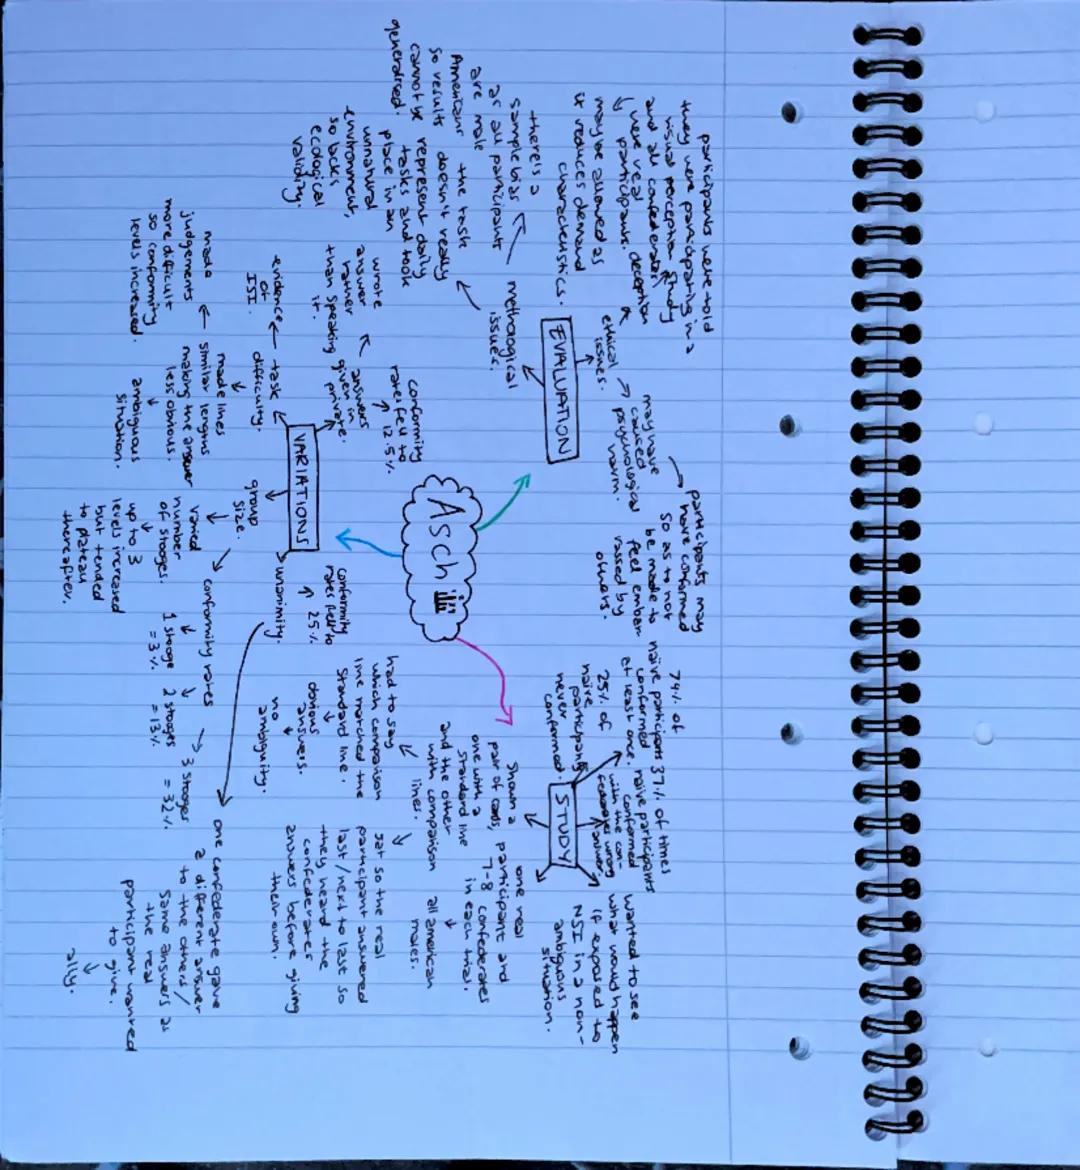 Asch
EVALUATION
ethical
issues.
participants were told
they were participating in a
visual perception study
and all confederates
were real
participants. deception
may be allowed as
it reduces demand
characteristics.
may have
caused
psychological
harm.
participants may
have conformed
so as to not
be made to
feel embar-
rassed by
others.
methological
issues.
there is a
sample bias
as all participants
are male
Americans
so results
cannot be
generalised.
the task
doesn't really
represent daily
tasks and took
place in an
unnatural
environment,
so lacks
ecological
validity.
STUDY
74% of
naive participants
conformed
at least once.
25% of
naive
participants
never
conformed.
37% of times
naive participants
conformed
with the con-
federates wrong
answer.
wanted to see
what would happen
if exposed to
NSI in a non-
ambiguous
situation.
one real
participant and
7-8 confederates
in each trial.
all american
males.
shown a
pair of cards,
one with a
standard line
and the other
with comparison
lines.
had to say
which comparison
line matched the
standard line.
obvious
answers.
no
ambiguity.
sat so the real
participant answered
last/next to last so
they heard the
confederates
answers before giving
their own.
VARIATIONS
answers
given in
private.
conformity
rates fell to
12.5%
wrote
answer
rather
than speaking
it.
task
difficulty.
evidence
of
ISI.
made lines
similar lengths
making the answer
less obvious.
ambiguous
situation.
made
judgements
more difficult
so conformity
levels increased.
group
size.
varied
number
of stooges.
up to 3
levels increased
but tended
to plateau
thereafter.
conformity rates
1 stooge
= 3%
2 stooges
= 13%
3 stooges
= 32%
unanimity.
conformity
rates fell to
25%
one confederate gave
a different answer
to the others/
same answers as
the real
participant wanted
to give.
ally.